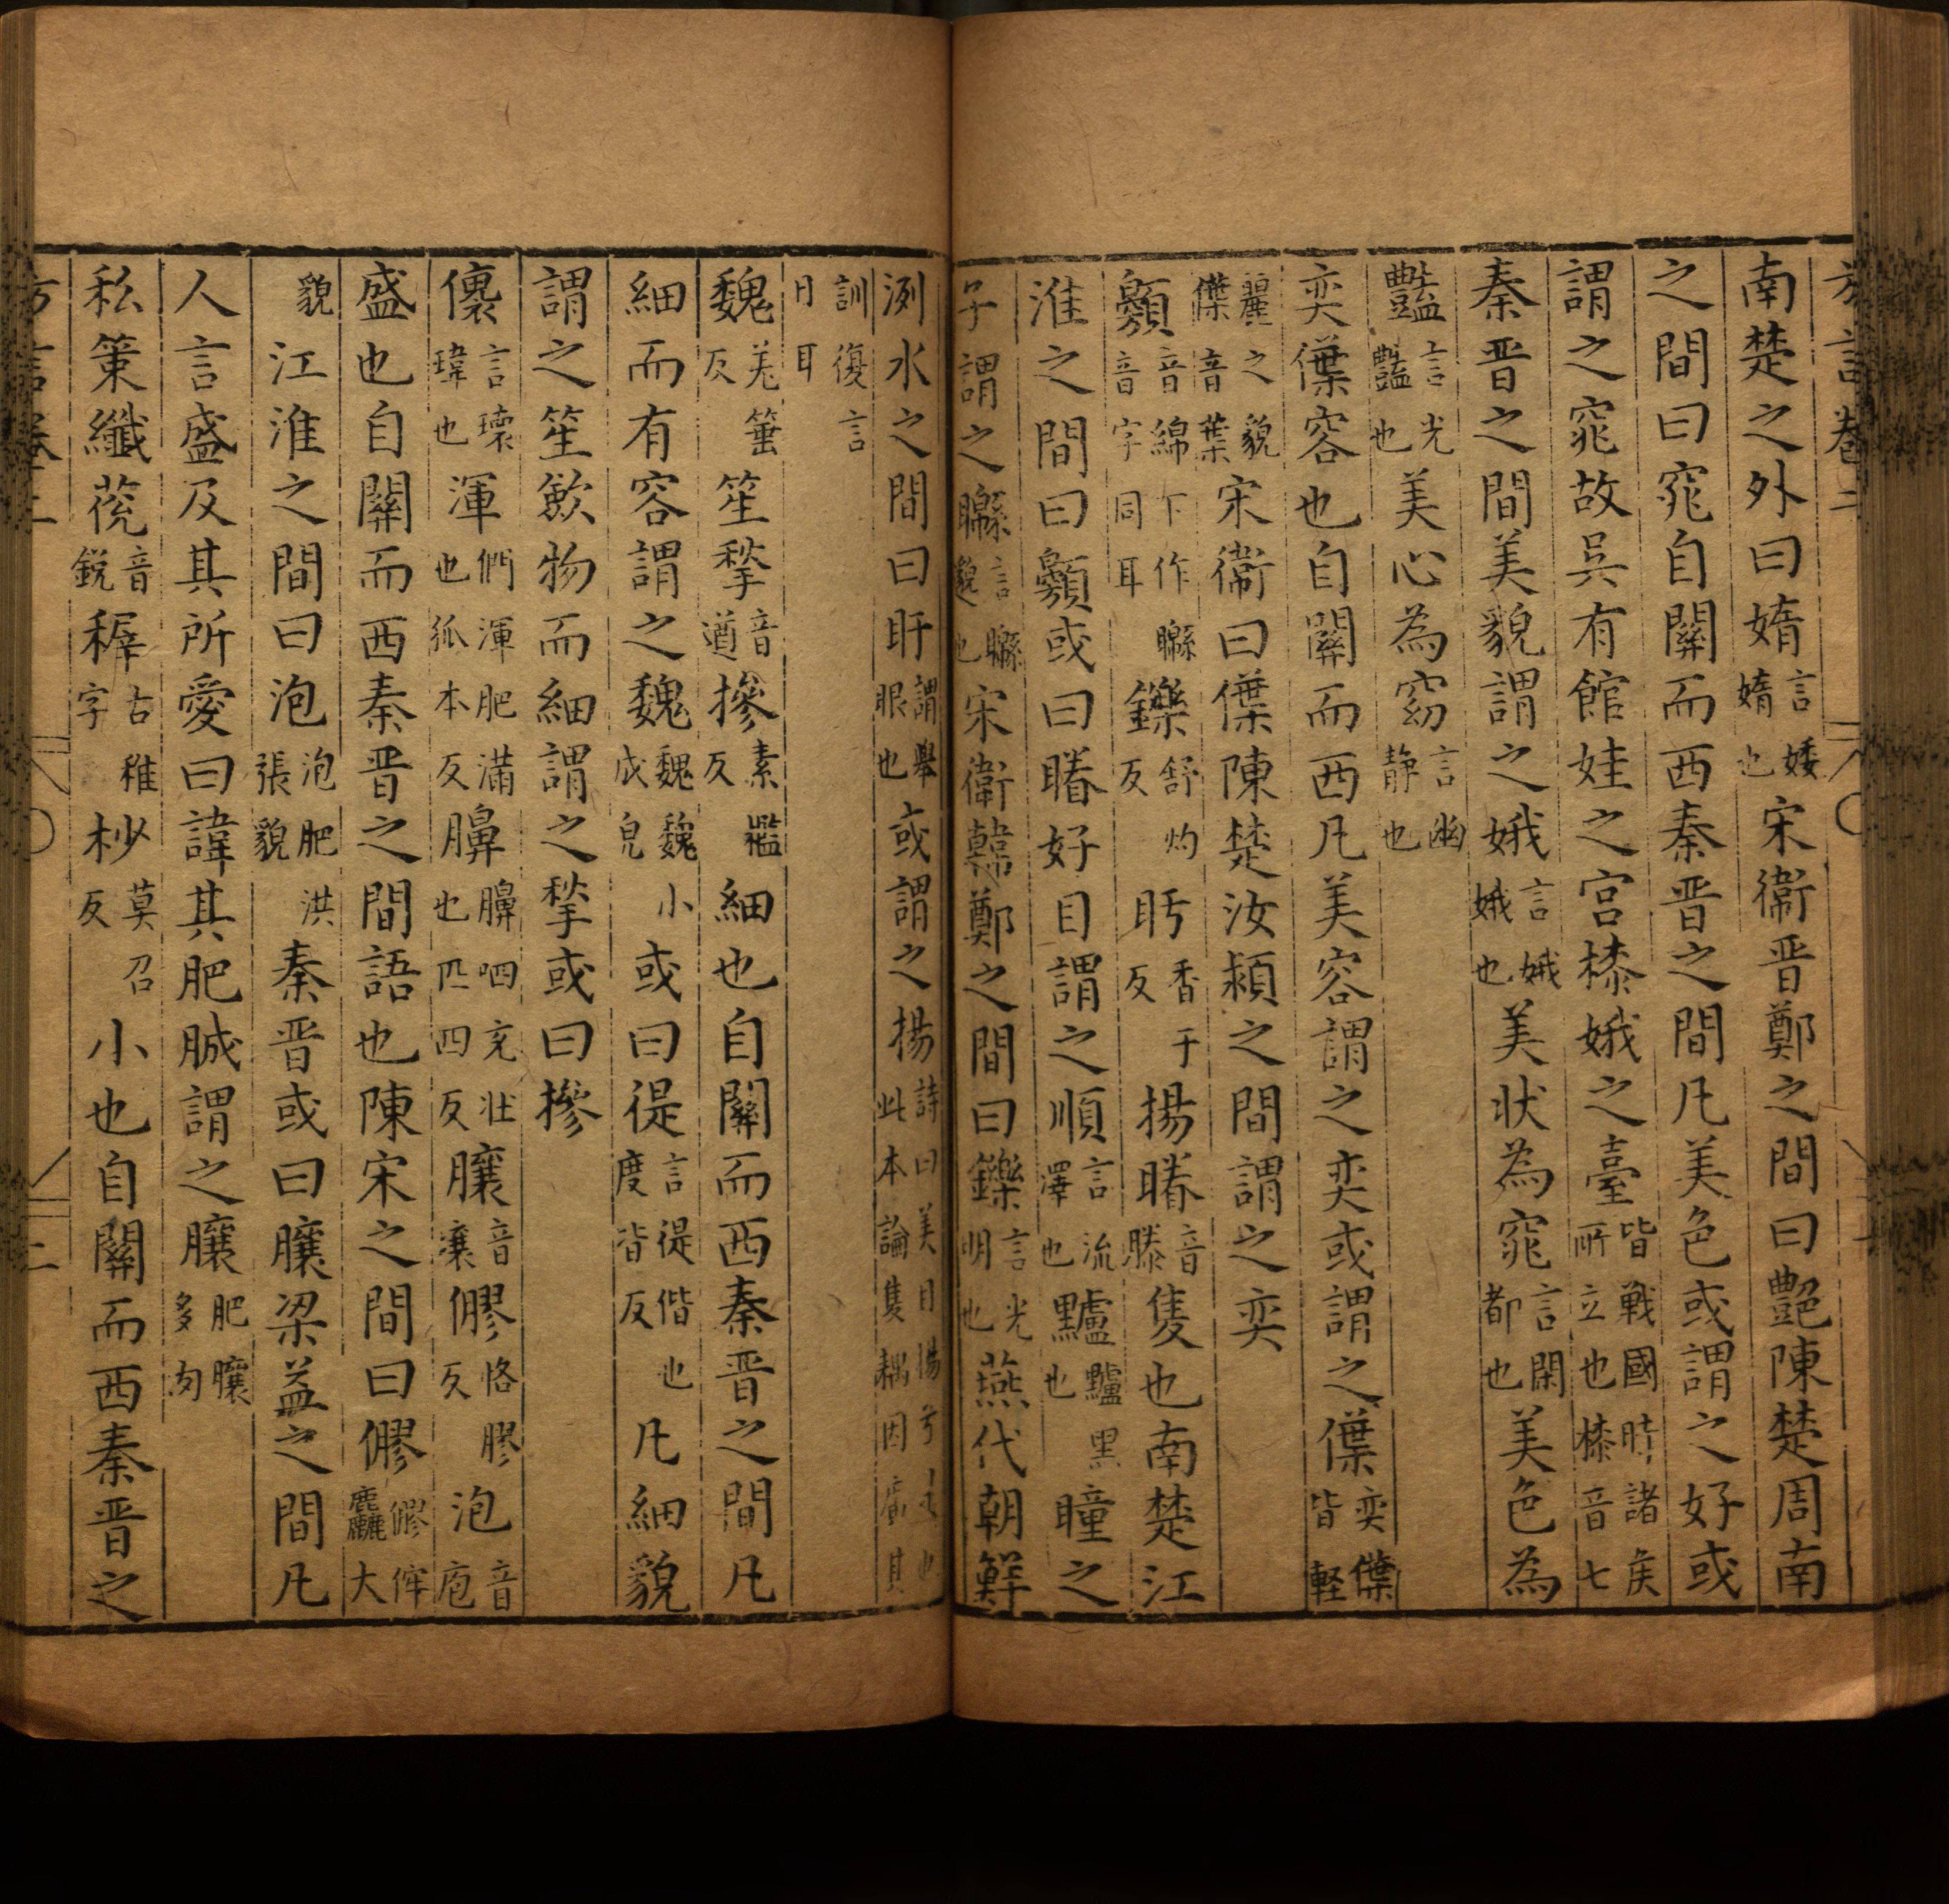 方言卷二
南楚之外曰媠言婑媠也宋衞晉鄭之間曰艶陳楚周南
之間曰窕自關而西秦晉之間凡美色或謂之好或
謂之窕故吳有館娃之宮榛娥之臺皆戰國時諸侯所立也榛音七
秦晉之間美貌謂之娥言娥娥也美狀為窕言閑都也美色為
豔言光豔也美心為窈言幽静也
奕僷容也自關而西凡美容謂之奕或謂之僷奕僷皆軽
麗之貌僷音葉宋衞曰僷陳楚汝潁之間謂之奕
顤音綿下作䁵音字同耳鑠舒灼反盱香于反揚䁅音滕隻也南楚江
淮之間曰顤或曰䁅好目謂之順言流澤也驢驢黑也瞳之
子謂之䁵言䁵邈也宋衞韓鄭之間曰鑠言光明也燕代朝鮮
洌水之間曰盱謂舉眼也或謂之揚詩曰美目揚兮此本論隻耦因廣其
訓復言耳
魏羌箠反笙揫音遒摻素檻反細也自關而西秦晉之間凡
細而有容謂之魏魏魏小成皃或曰徥言徥偕也度皆反凡細貌
謂之笙歛物而細謂之揫或曰摻
儴言瓌瑋也渾們渾肥滿也狐本反膞膞呬充壯也匹四反䑋音壤㒧恪膠反泡音庖
盛也自關而西秦晉之間語也陳宋之間曰㒧㒧侔麤大
貌江淮之間曰泡泡肥洪張貌秦晉或曰䑋梁益之間凡
人言盛及其所愛曰諱其肥䐛謂之䑋肥䑋多肉
私策纖䓲音鋭稺古稚字杪莫召反小也自關而西秦晉之